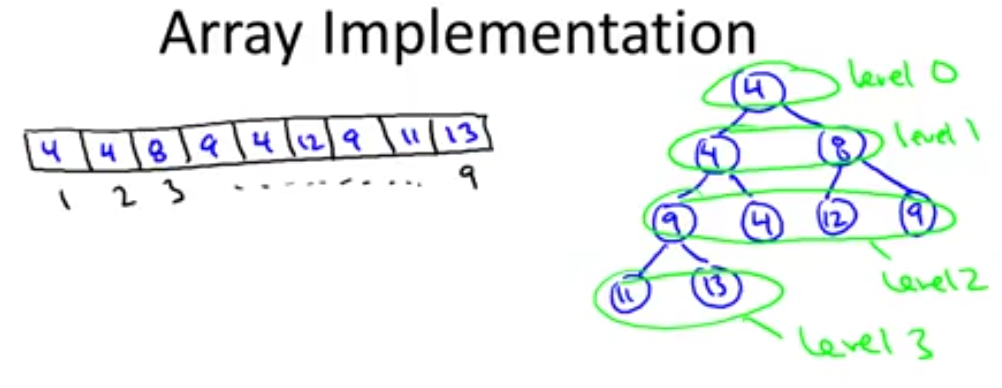 Array Implementation
4 4 8 9 4 12 9 11 13
1 2 3 ........... 9
4 level 0
4 8 level 1
9 4 12 9
level 2
11 13
level 3